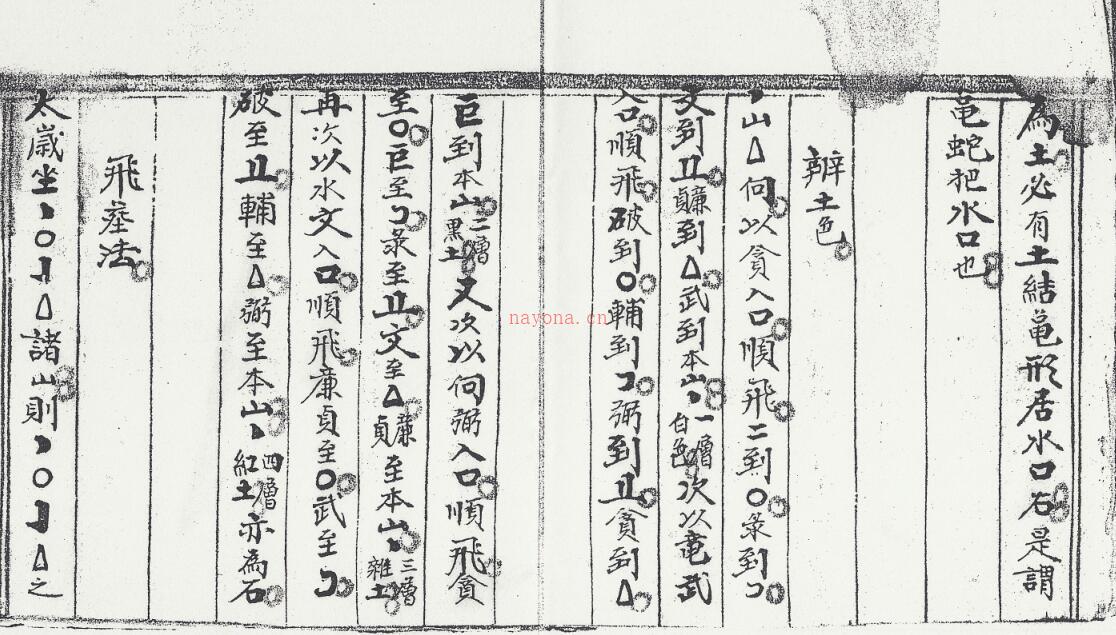 為土必有土結亀形居水口石是謂
亀蛇把水口也
辨土色
丶山△向以貪入口順飛二到〇彔到コ
文到 廉貞到△武到本山丶一層白色次以竜武
入口順飛破到〇輔到コ弼到 貪到△
巨到本山丶二層黒土又次以向弼入口順飛貪
至〇巨至コ彔至 文至△廉貞至本山丶三層雜土
再次以水文入口順飛廉貞至〇武至コ
破至 輔至△弼至本山丶四層紅土亦為石
飛 法
太歲坐丶〇 △諸山則丶〇 △之
nayona.cn